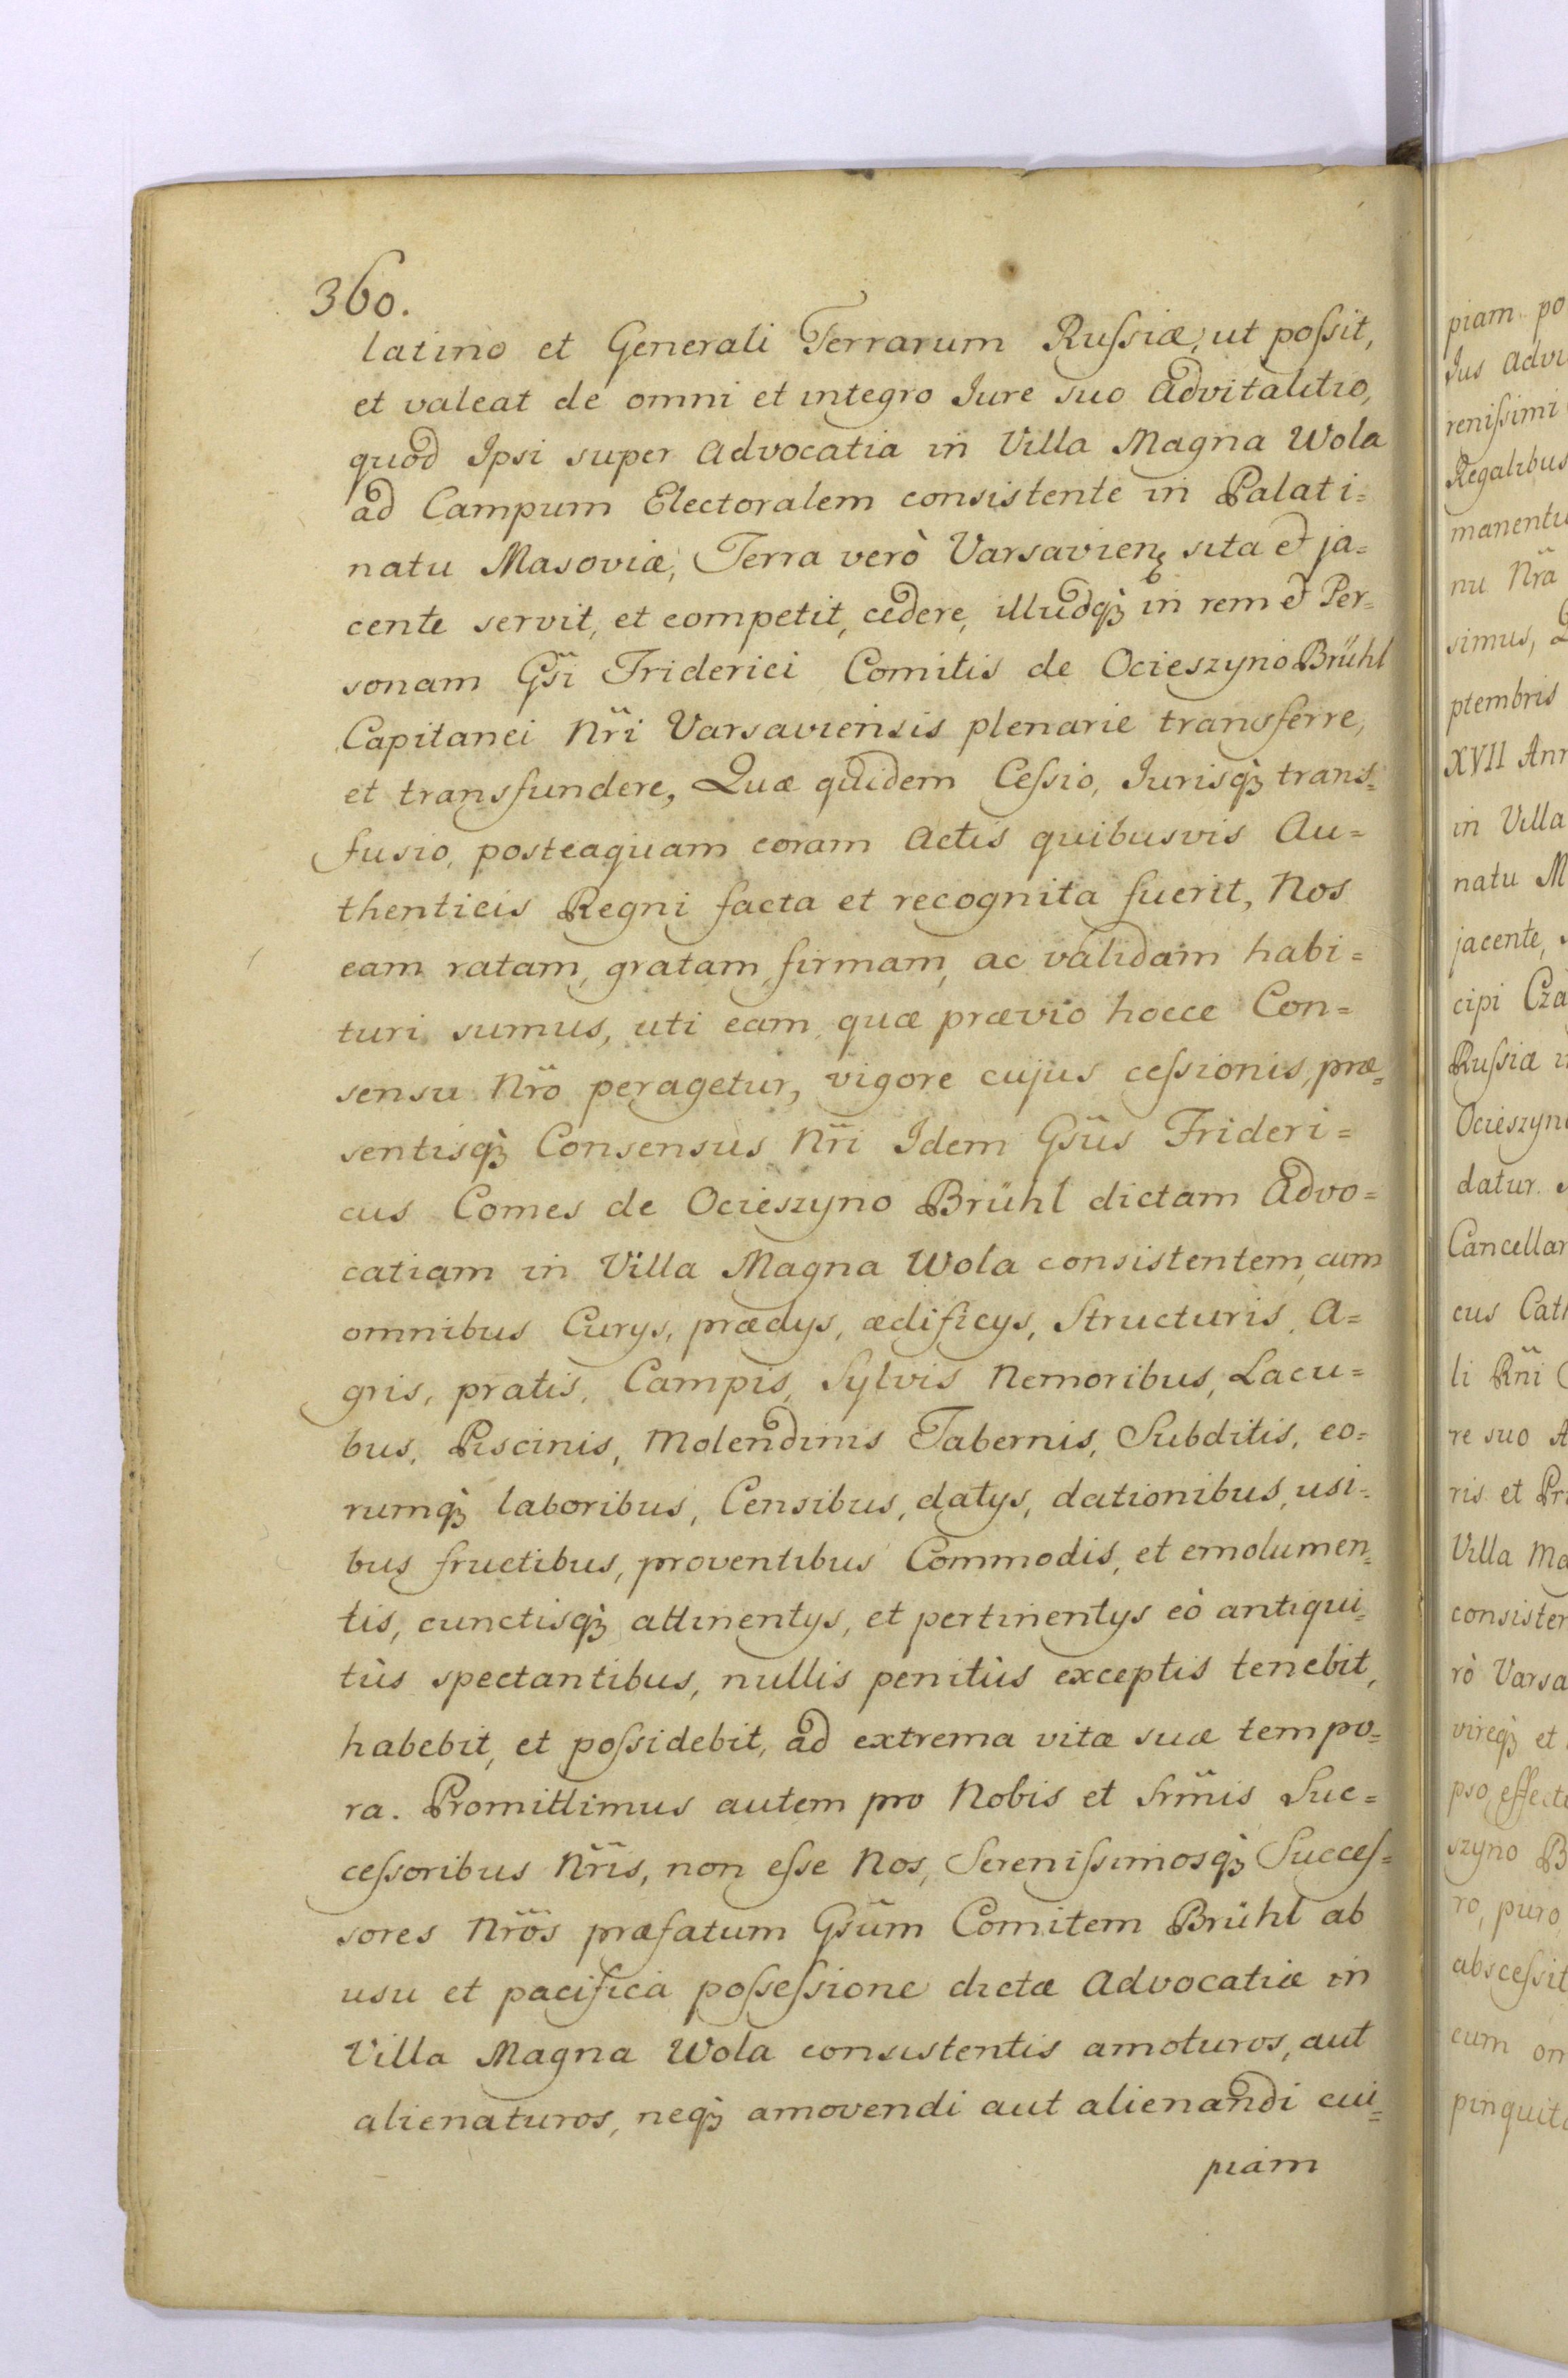 360.
latino et Generali Terrarum Rußiæ, ut poßit,
et valeat de omni et integro Iure suo advitalitio,
quod Ipsi super advocatia in Villa Magna Wola
ad Campum Electoralem consistente in Palati=
natu Masoviæ, Terra verò Varsavienẽ sita et ja=
cente servit, et competit, cedere, illudqꝫ in rem et Per=
sonam Gsi Friderici Comitis de Ocieszyno Brühl
Capitanei Nri Varsaviensis plenarie transferre,
et transfundere, Quæ quidem Ceßio, Iurisqꝫ trans=
fusio, posteaquam coram actis quibusvis Au=
thenticis Regni facta et recognita fuerit, Nos
eam ratam, gratam, firmam, ac validam habi=
turi sumus, uti eam, quæ prævio hocce Con=
sensu Nro peragetur, vigore cujus ceßionis, præ=
sentisqꝫ Consensus Nri Idem Gsus Frideri=
cus Comes de Ocieszyno Brühl dictam advo=
catiam in Villa Magna Wola consistentem, cum
omnibus Curys, prædys, ædificys, Structuris, a=
gris, pratis, Campis, Sylvis Nemoribus, Lacu=
bus, Piscinis, Molendinis Tabernis, Subditis, eo=
rumqꝫ laboribus, Censibus, datys, dationibus, usi=
bus fructibus, proventibus Commodis, et emolumen=
tis, cunctisqꝫ attinentys, et pertinentys eò antiqui=
tùs spectantibus, nullis penitùs exceptis tenebit,
habebit, et poßidebit, ad extrema vitæ suæ tempo=
ra. Promittimus autem pro Nobis et Srmis Suc=
ceßoribus Nris, non eße Nos, Serenißimosqꝫ Succeſ=
sores Nros præfatum Gsum Comitem Brühl ab
usu et pacifica poßeßione dictæ advocatiæ in
Villa Magna Wola consistentis amoturos, aut
alienaturos, neqꝫ amovendi aut alienandi cui=
piam
piam po
Jus advi
renißimi
Regalibus
manentu
nu Nra
simus,
ptembris
XVII Ann
in Villa
natu M
jacente,
cipi Cza
Rußiæ
Ocieszyno
datur.
Cancellar
cus Cath
li Rni
re suo A
ris et Pri
Villa Ma
consisten
rò Varsa
vireqꝫ et
pso, effectu
szyno B
ro, puro
absceßit
cum om
pinquita